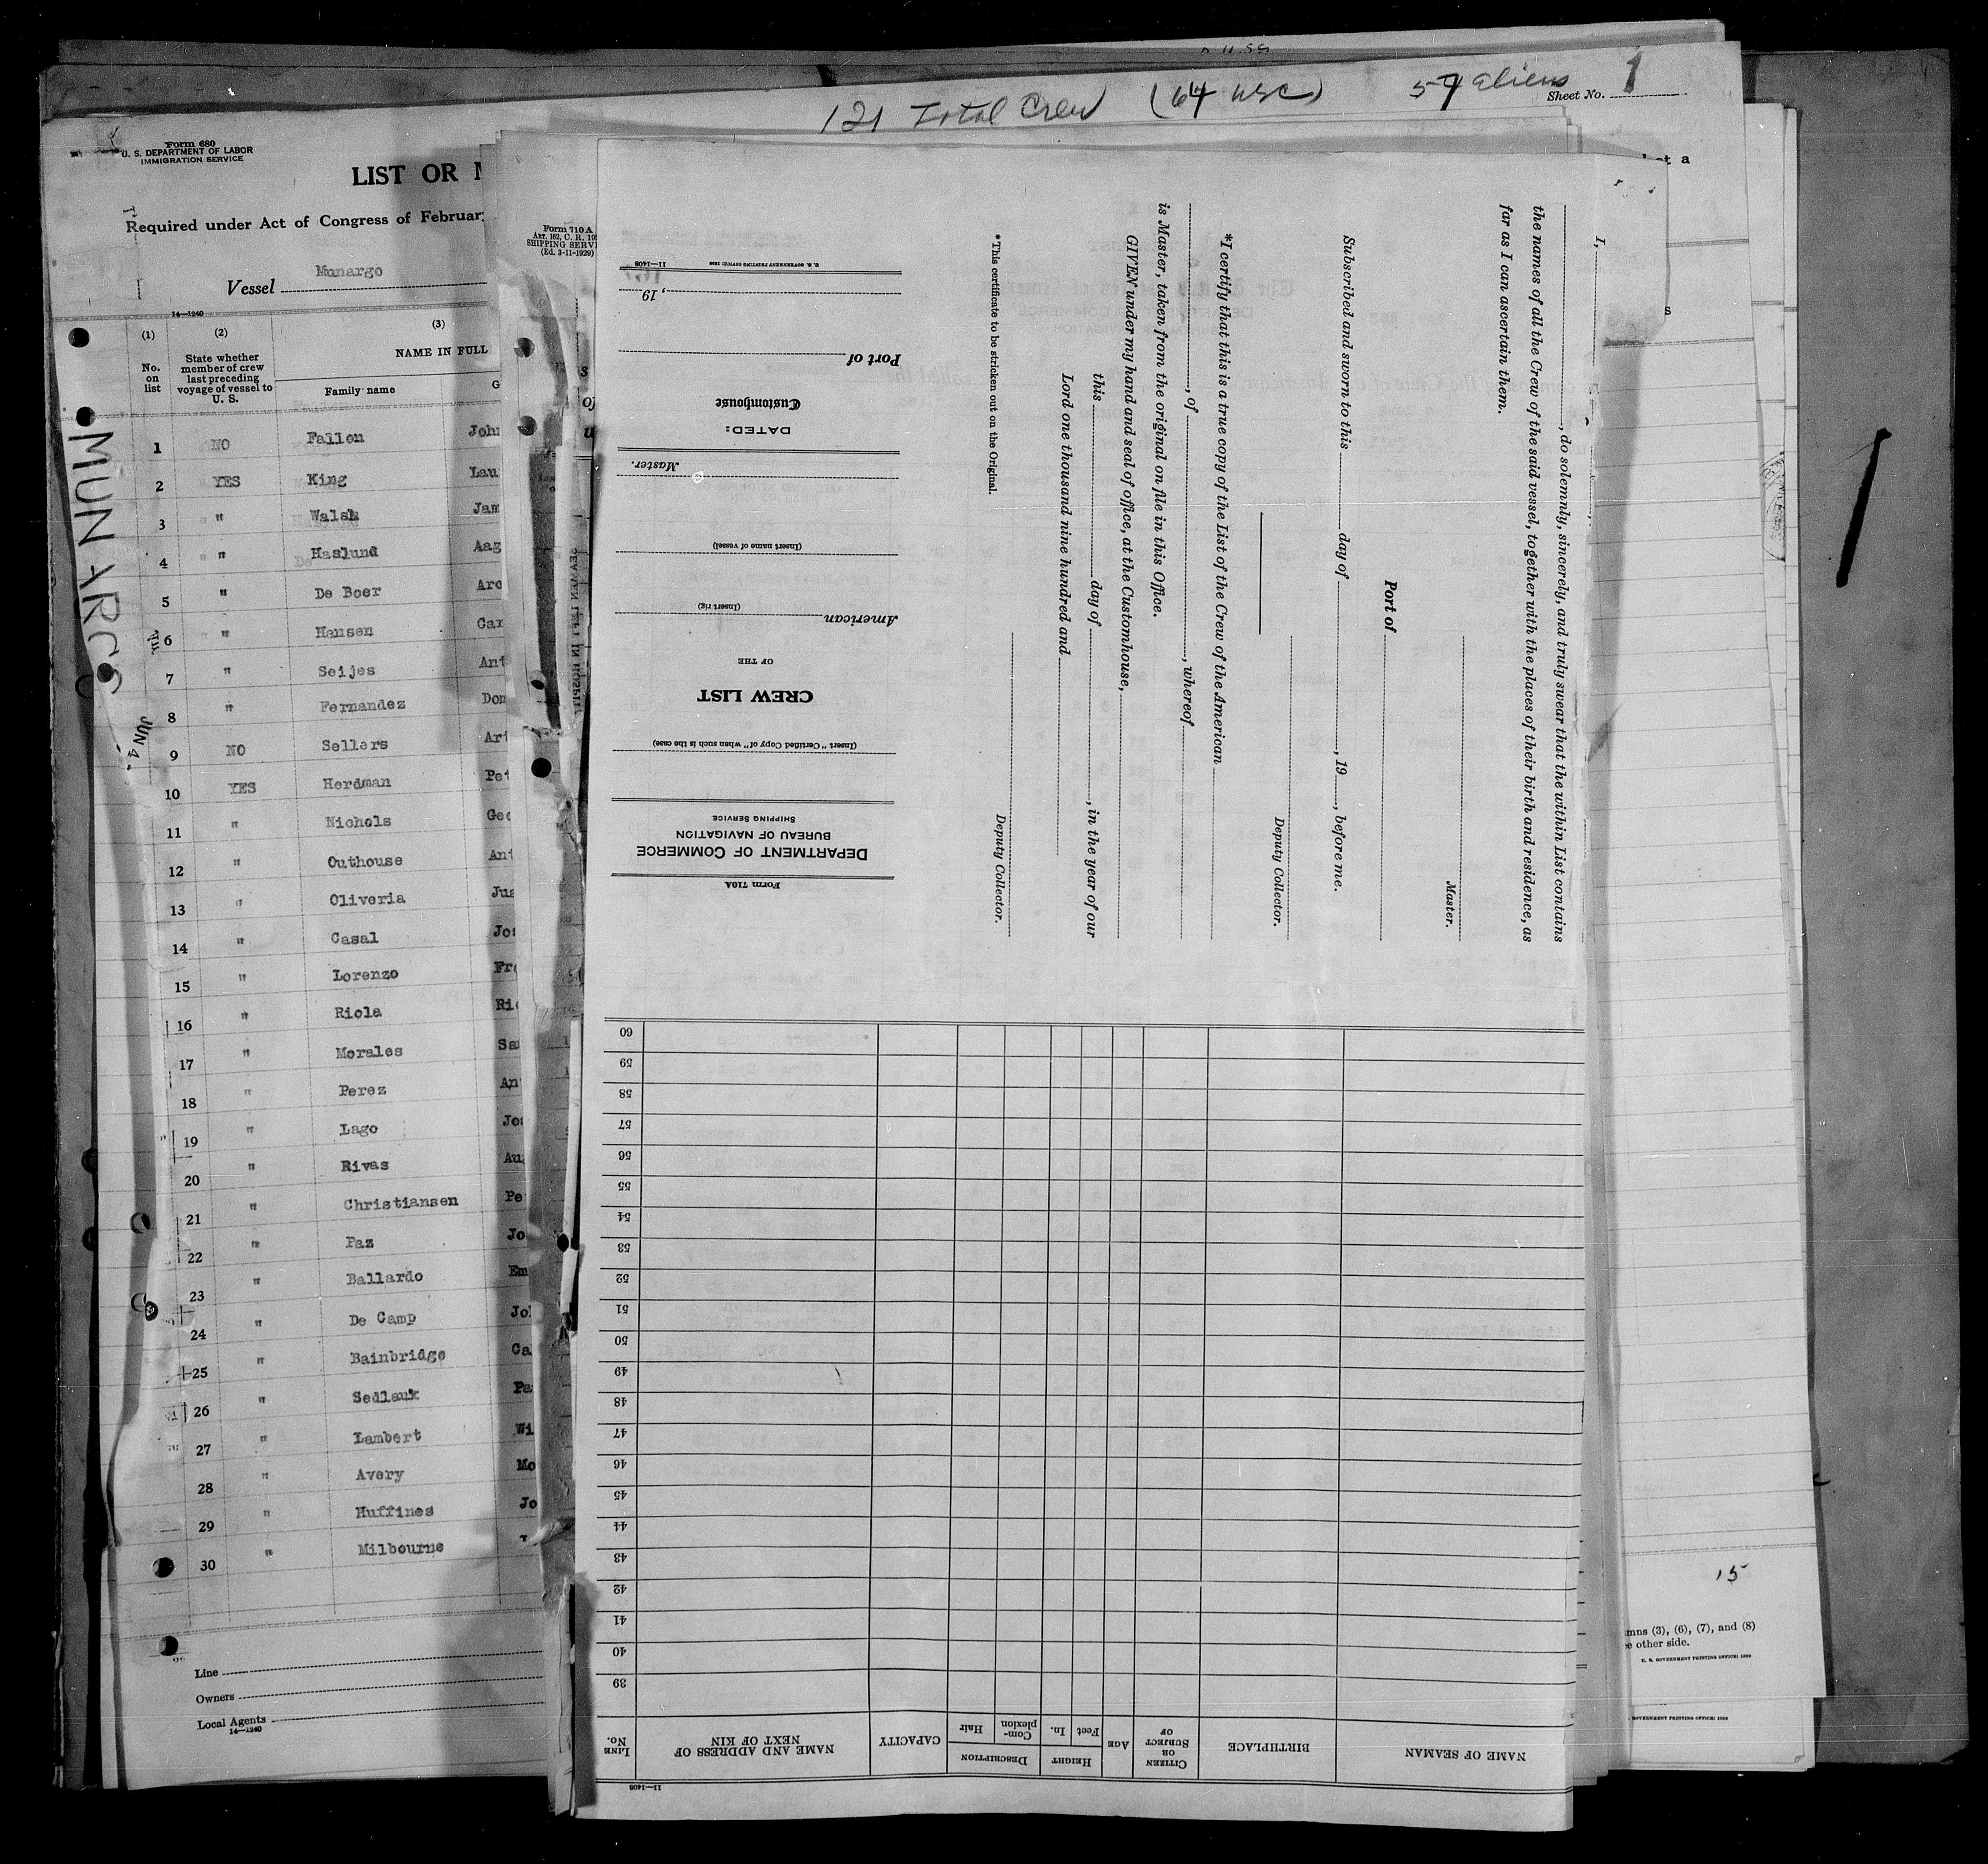 121 Total Crew (64 USC) 57 Aliens
Sheet No. 1
Form 680
U. S. DEPARTMENT OF LABOR
IMMIGRATION SERVICE
LIST OR
Required under Act of Congress of February
Vessel Munargo
14—1240
(1) (2) (3)
No. on list
State whether member of crew last preceding voyage of vessel to U. S.
NAME IN FULL
Family name
MUNARGO
JUN 4
1 NO Fallon John
2 YES King Lau
3 " Walsh Jam
4 " Haslund Aag
5 " De Boer Arc
6 " Hansen Car
7 " Seijes Ant
8 " Fernandez Dom
9 NO Sellers Art
10 YES Herdman Pet
11 " Nichols Geo
12 " Outhouse Ant
13 " Oliveria Jua
14 " Casal Jos
15 " Lorenzo Fra
16 " Riola Ric
17 " Morales Sa
18 " Perez An
19 " Lago Jos
20 " Rivas Au
21 " Christiansen Pe
22 " Paz Jo
23 " Ballardo Em
24 " De Camp Jo
25 " Bainbridge Ca
26 " Sedlauk Pa
27 " Lambert Wi
28 " Avery Mo
29 " Huffines Jo
30 " Milbourne
Line
Owners
Local Agents
14—1240
Form 710A
ART. 162, C. R. 19
SHIPPING SERVI
(Ed. 3-11-1929)
I, , do solemnly, sincerely, and truly swear that the within List contains
the names of all the Crew of the said vessel, together with the places of their birth and residence, as
far as I can ascertain them.
Master.
Port of
Subscribed and sworn to this day of , 19 , before me.
Deputy Collector.
*I certify that this is a true copy of the List of the Crew of the American
, of , whereof
is Master, taken from the original on file in this Office.
GIVEN under my hand and seal of office, at the Customhouse,
this day of , in the year of our
Lord one thousand nine hundred and
Deputy Collector.
*This certificate to be stricken out on the Original.
Form 710A
DEPARTMENT OF COMMERCE
BUREAU OF NAVIGATION
SHIPPING SERVICE
(Insert "Certified Copy of" when such is the case)
CREW LIST
OF THE
American
(Insert rig)
(Insert name of vessel)
Master.
DATED:
Customhouse
Port of
, 19
U. S. GOVERNMENT PRINTING OFFICE: 11—1408
60
59
58
57
56
55
54
53
52
51
50
49
48
47
46
45
44
43
42
41
40
39
LINE No.
NAME AND ADDRESS OF NEXT OF KIN
CAPACITY
DESCRIPTION
Hair
Complexion
HEIGHT
In.
Feet
AGE
CITIZEN OR SUBJECT OF
BIRTHPLACE
NAME OF SEAMAN
11—1408
15
mns (3), (6), (7), and (8)
e other side.
U. S. GOVERNMENT PRINTING OFFICE: 1929
GOVERNMENT PRINTING OFFICE: 1929